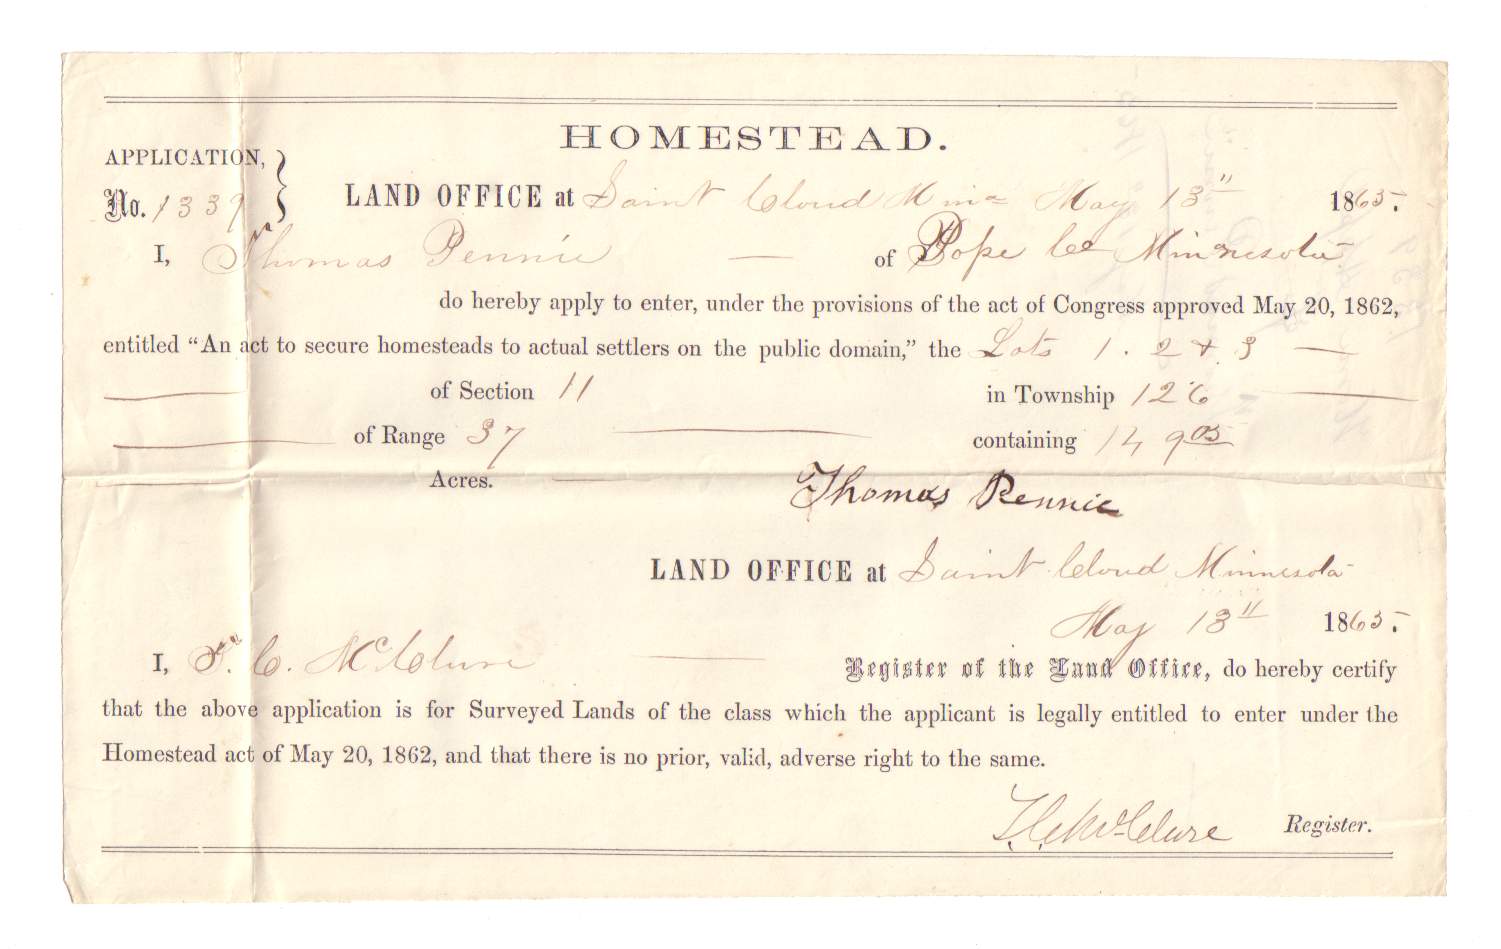 HOMESTEAD.
APPLICATION,
No. 1339
LAND OFFICE at Saint Cloud Minn May 13" 1865.
I, Thomas Rennie of Pope Co Minnesota
do hereby apply to enter, under the provisions of the act of Congress approved May 20, 1862,
entitled “An act to secure homesteads to actual settlers on the public domain,” the Lots 1. 2 & 3
of Section 11 in Township 126
of Range 37 containing 149 05
Acres.
Thomas Rennie
LAND OFFICE at Saint Cloud Minnesota
May 13" 1865.
I, T. C. McClure Register of the Land Office, do hereby certify
that the above application is for Surveyed Lands of the class which the applicant is legally entitled to enter under the
Homestead act of May 20, 1862, and that there is no prior, valid, adverse right to the same.
T. C. McClure Register.